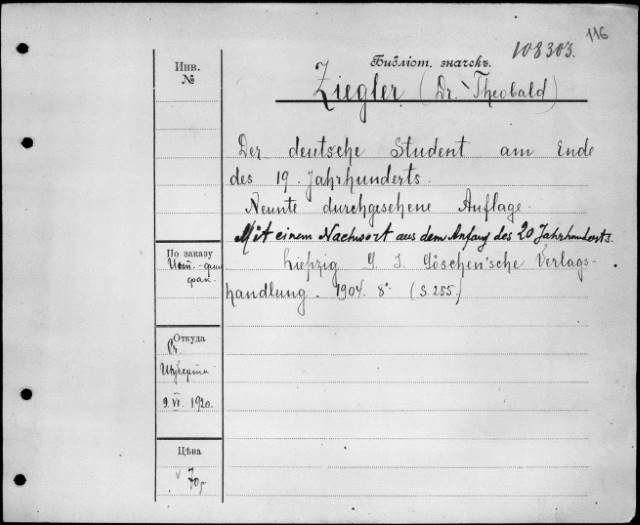 116
108303.
Библіот. значекъ.
Инв.
№
Ziegler (Dr. Theobald)
Der deutsche Student am Ende
des 19. Jahrhunderts.
Neunte durchgesehene Auflage.
Mit einem Nachwort aus dem Anfang des 20 Jahrhunderts.
Leipzig G. J. Göschen'sche Verlags-
handlung. 1904. 8° (S. 255.)
По заказу
Ист.-фил
фак.
Откуда
9. VI. 1920.
Цѣна
70р